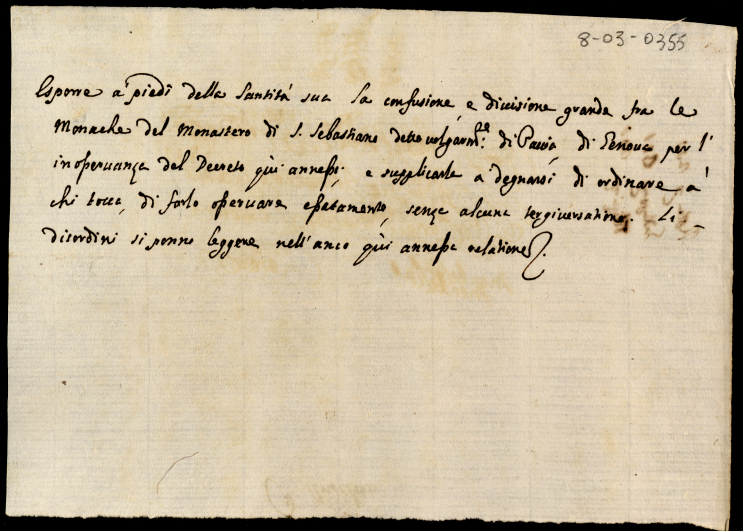 8-03-0355
Esporre a' piedi della Santità sua la confusione, e divisione grande fra le
Monache del Monastero di S. Sebastiano detto volgarm.te di Pavia di Genova per l'
inosservanza del Decreto qùi annesso, e supplicarla a degnarsi di ordinare a'
chi tocca, di farlo osservare esattamente, senza alcuna tergiversatione. Li
disordini si ponno leggere nell'anco qùi annessa relatione.